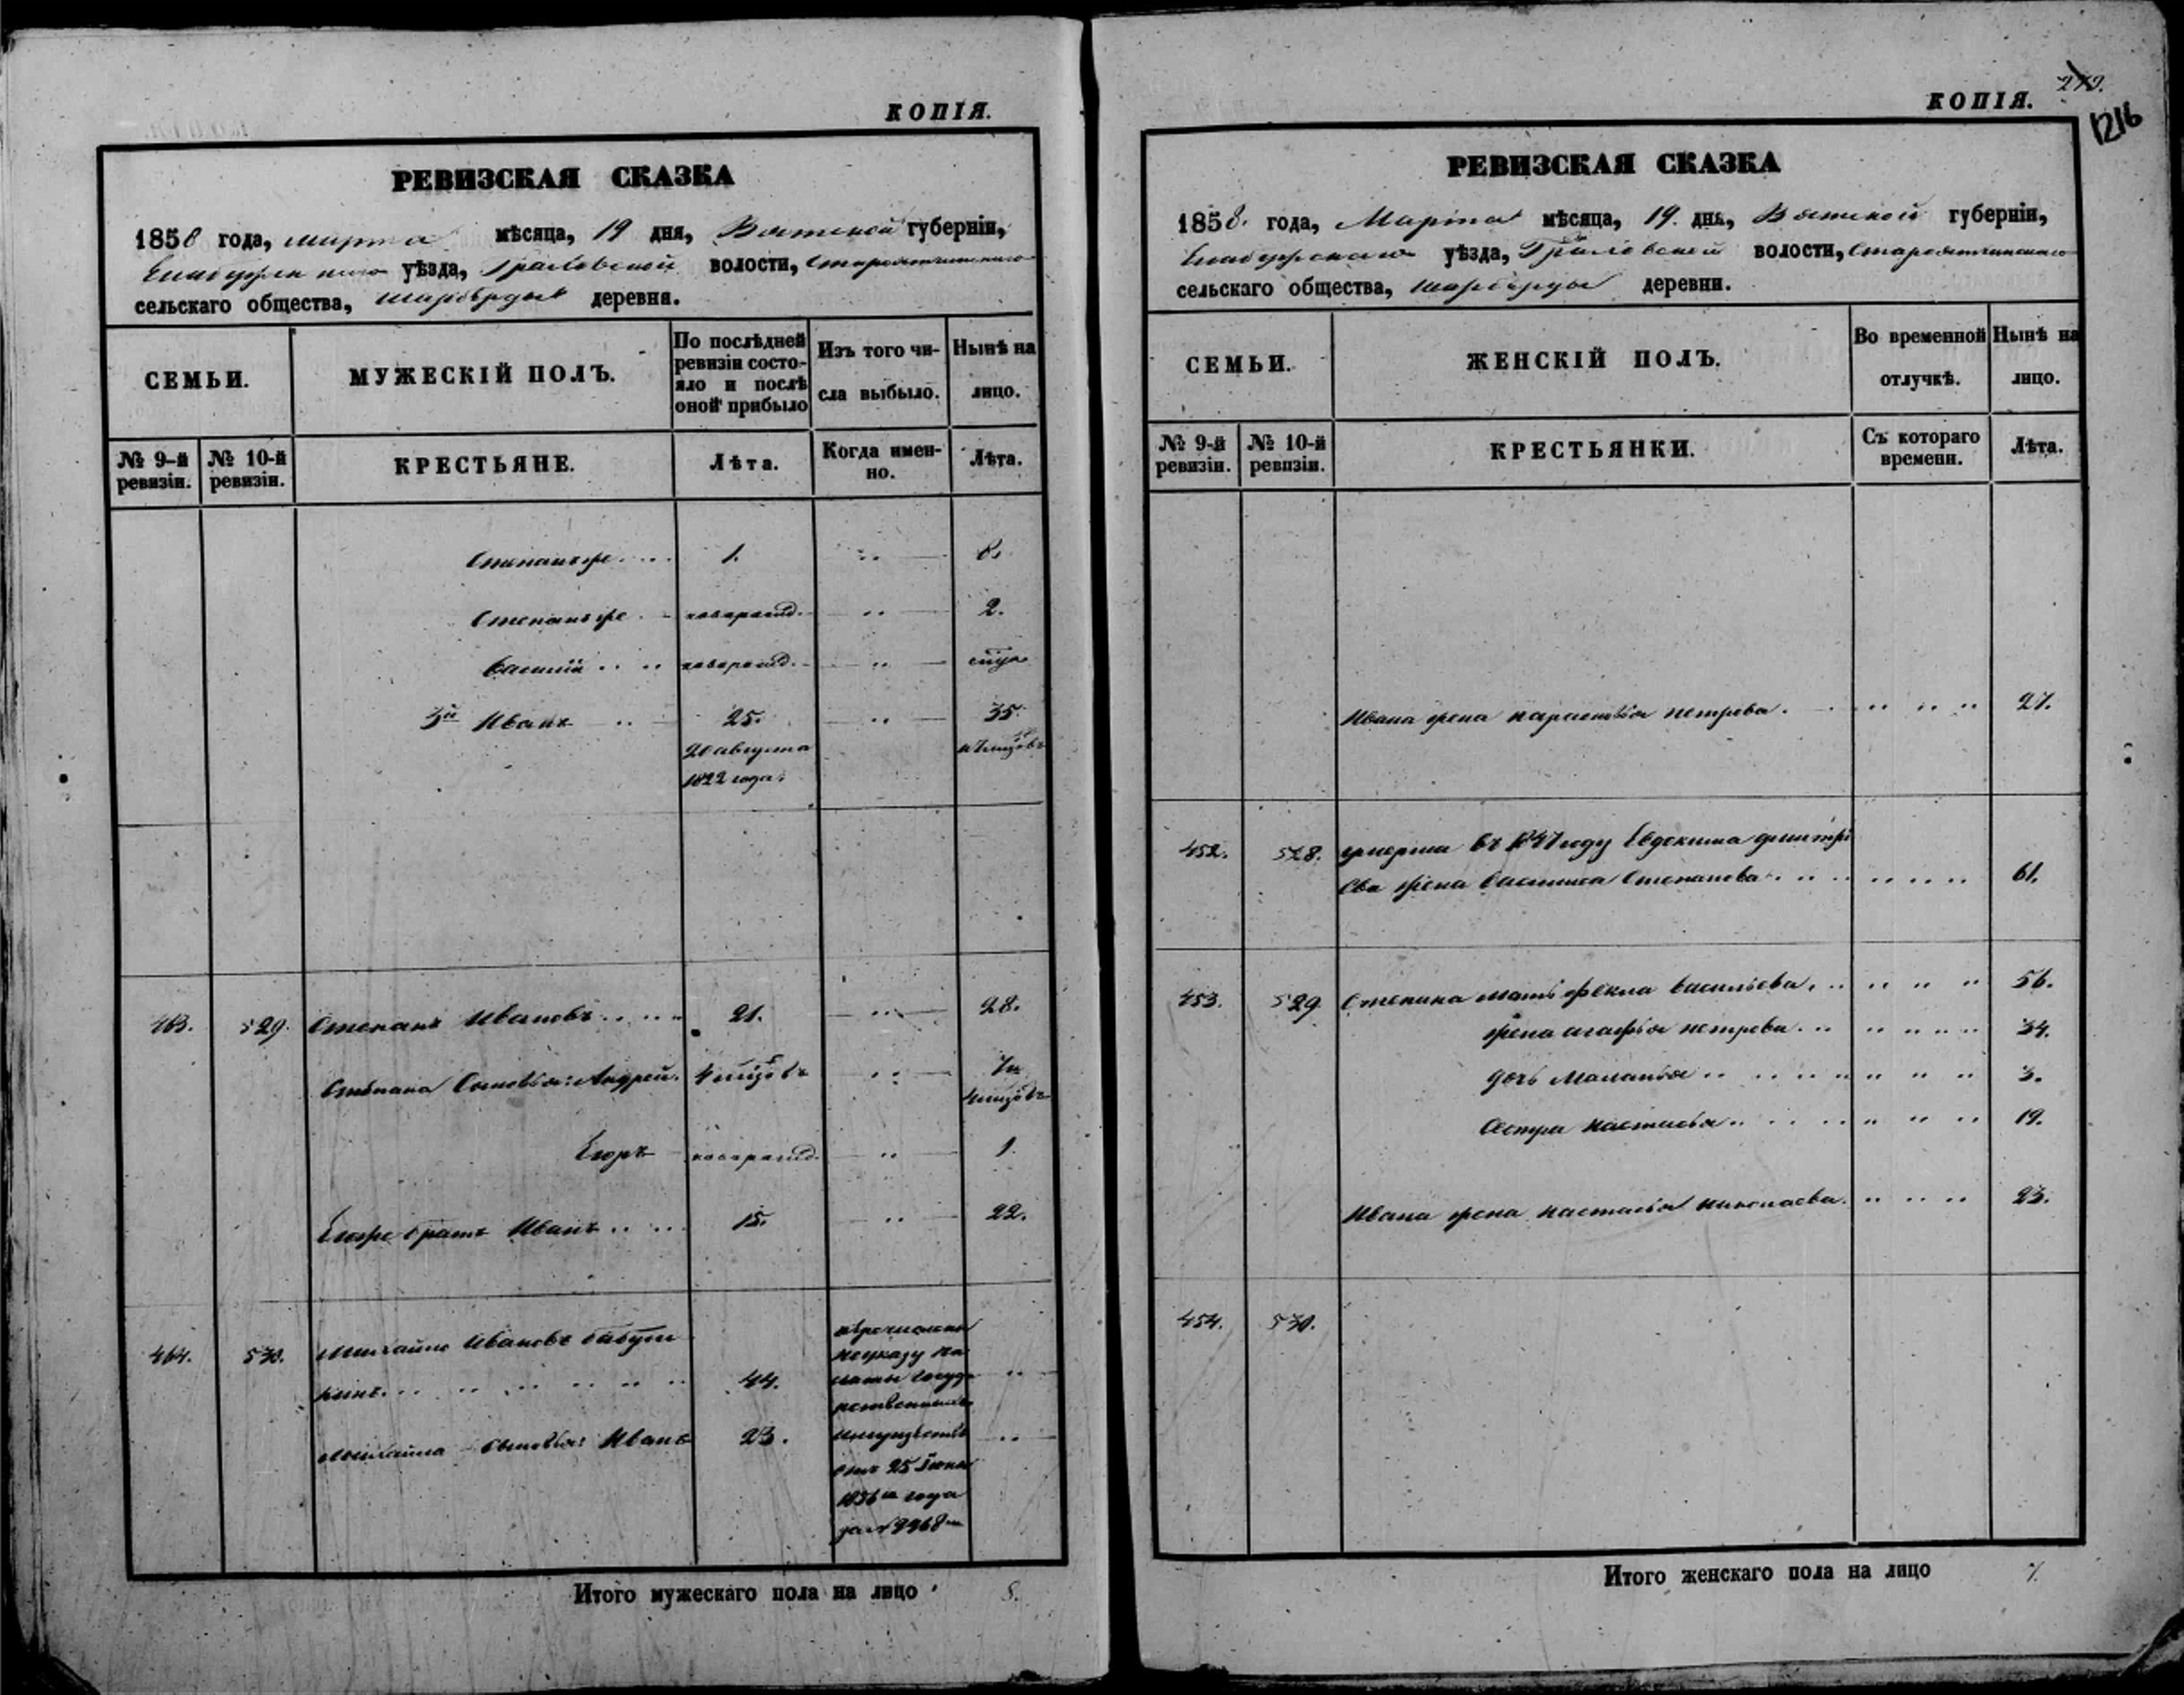 КОПІЯ.
РЕВИЗСКАЯ СКАЗКА
1858 года, марта мѣсяца, 19 дня, Вятской губерніи,
Елабужскаго уѣзда, Граховской волости, Староятчинскаго
сельскаго общества, Шарберды деревня.
СЕМЬИ.
МУЖЕСКІЙ ПОЛЪ.
По послѣдней ревизіи состояло и послѣ оной прибыло
Изъ того числа выбыло.
Нынѣ на лицо.
№ 9-й ревизіи.
№ 10-й ревизіи.
КРЕСТЬЯНЕ.
Лѣта.
Когда именно.
Лѣта.
Степанъ же 1. 8.
Степанъ же новорожд. 2.
Василій новорожд.
3й Иванъ 25. 35.
20 августа
1822 года
463. 529. Степанъ Ивановъ 21. 28.
Степана Сыновья: Андрей. 4 мцовъ 7 и
4 мцовъ
Егоръ новорожд. 1.
братъ Иванъ 15. 22.
464. 530. Михайло Ивановъ Бабуш
кинъ. 44.
Михайла Сыновья: Иванъ 23.
перечислены
по указу Па
латы Госуд
рственныхъ
имуществъ
отъ 25 Іюня
1856 года
за № 9968
Итого мужескаго пола на лицо 8.
КОПІЯ.
1216
РЕВИЗСКАЯ СКАЗКА
1858. года, Марта мѣсяца, 19. днь, Вятской губерніи,
Елабужскаго уѣзда, Граховской волости, Староятчинскаго
сельскаго общества, Шарберды деревни.
СЕМЬИ.
ЖЕНСКІЙ ПОЛЪ.
Во временной отлучкѣ.
Нынѣ на лицо.
№ 9-й ревизіи.
№ 10-й ревизіи.
КРЕСТЬЯНКИ.
Съ котораго времени.
Лѣта.
Ивана жена Парасковья Петрова. 27.
452. 528. умерша въ 1847 году Евдокима Дмитрі
ева жена Василиса Степанова 61.
453. 529. Степана мать Фекла Васильева. 56.
жена Агафья Петрова. 34.
дочь Маланья 3.
Сестра Настасья 19.
Ивана жена Настасья Николаева. 23.
454. 530.
Итого женскаго пола на лицо 7.